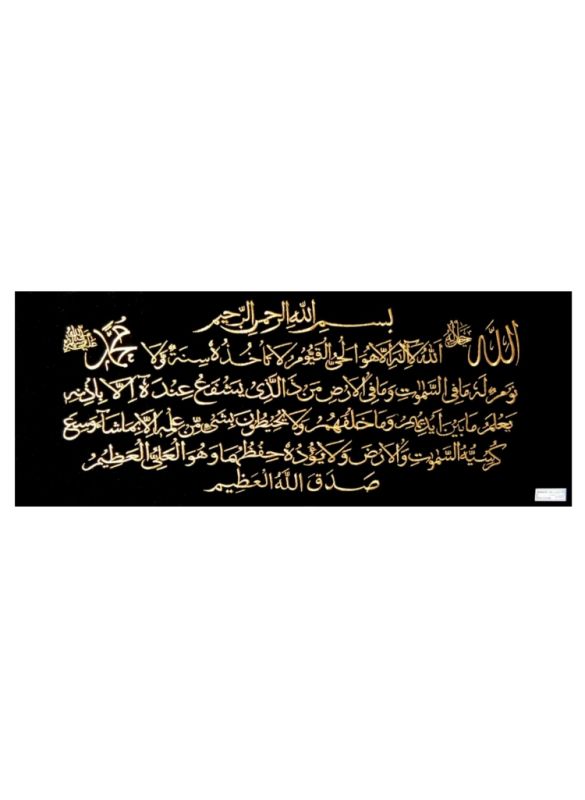 بسم الله الرحمن الرحيم
الله جل جلاله
محمد
الله لا اله الا هو الحي القيوم لا تأخذه سنة ولا
نوم له ما في السموت وما في الارض من ذا الذي يشفع عنده الا باذنه
يعلم ما بين ايديهم وما خلفهم ولا يحيطون بشئ من علمه الا بما شاء وسع
كرسيه السموت والارض ولا يؤده حفظهما وهو العلي العظيم
صدق الله العظيم